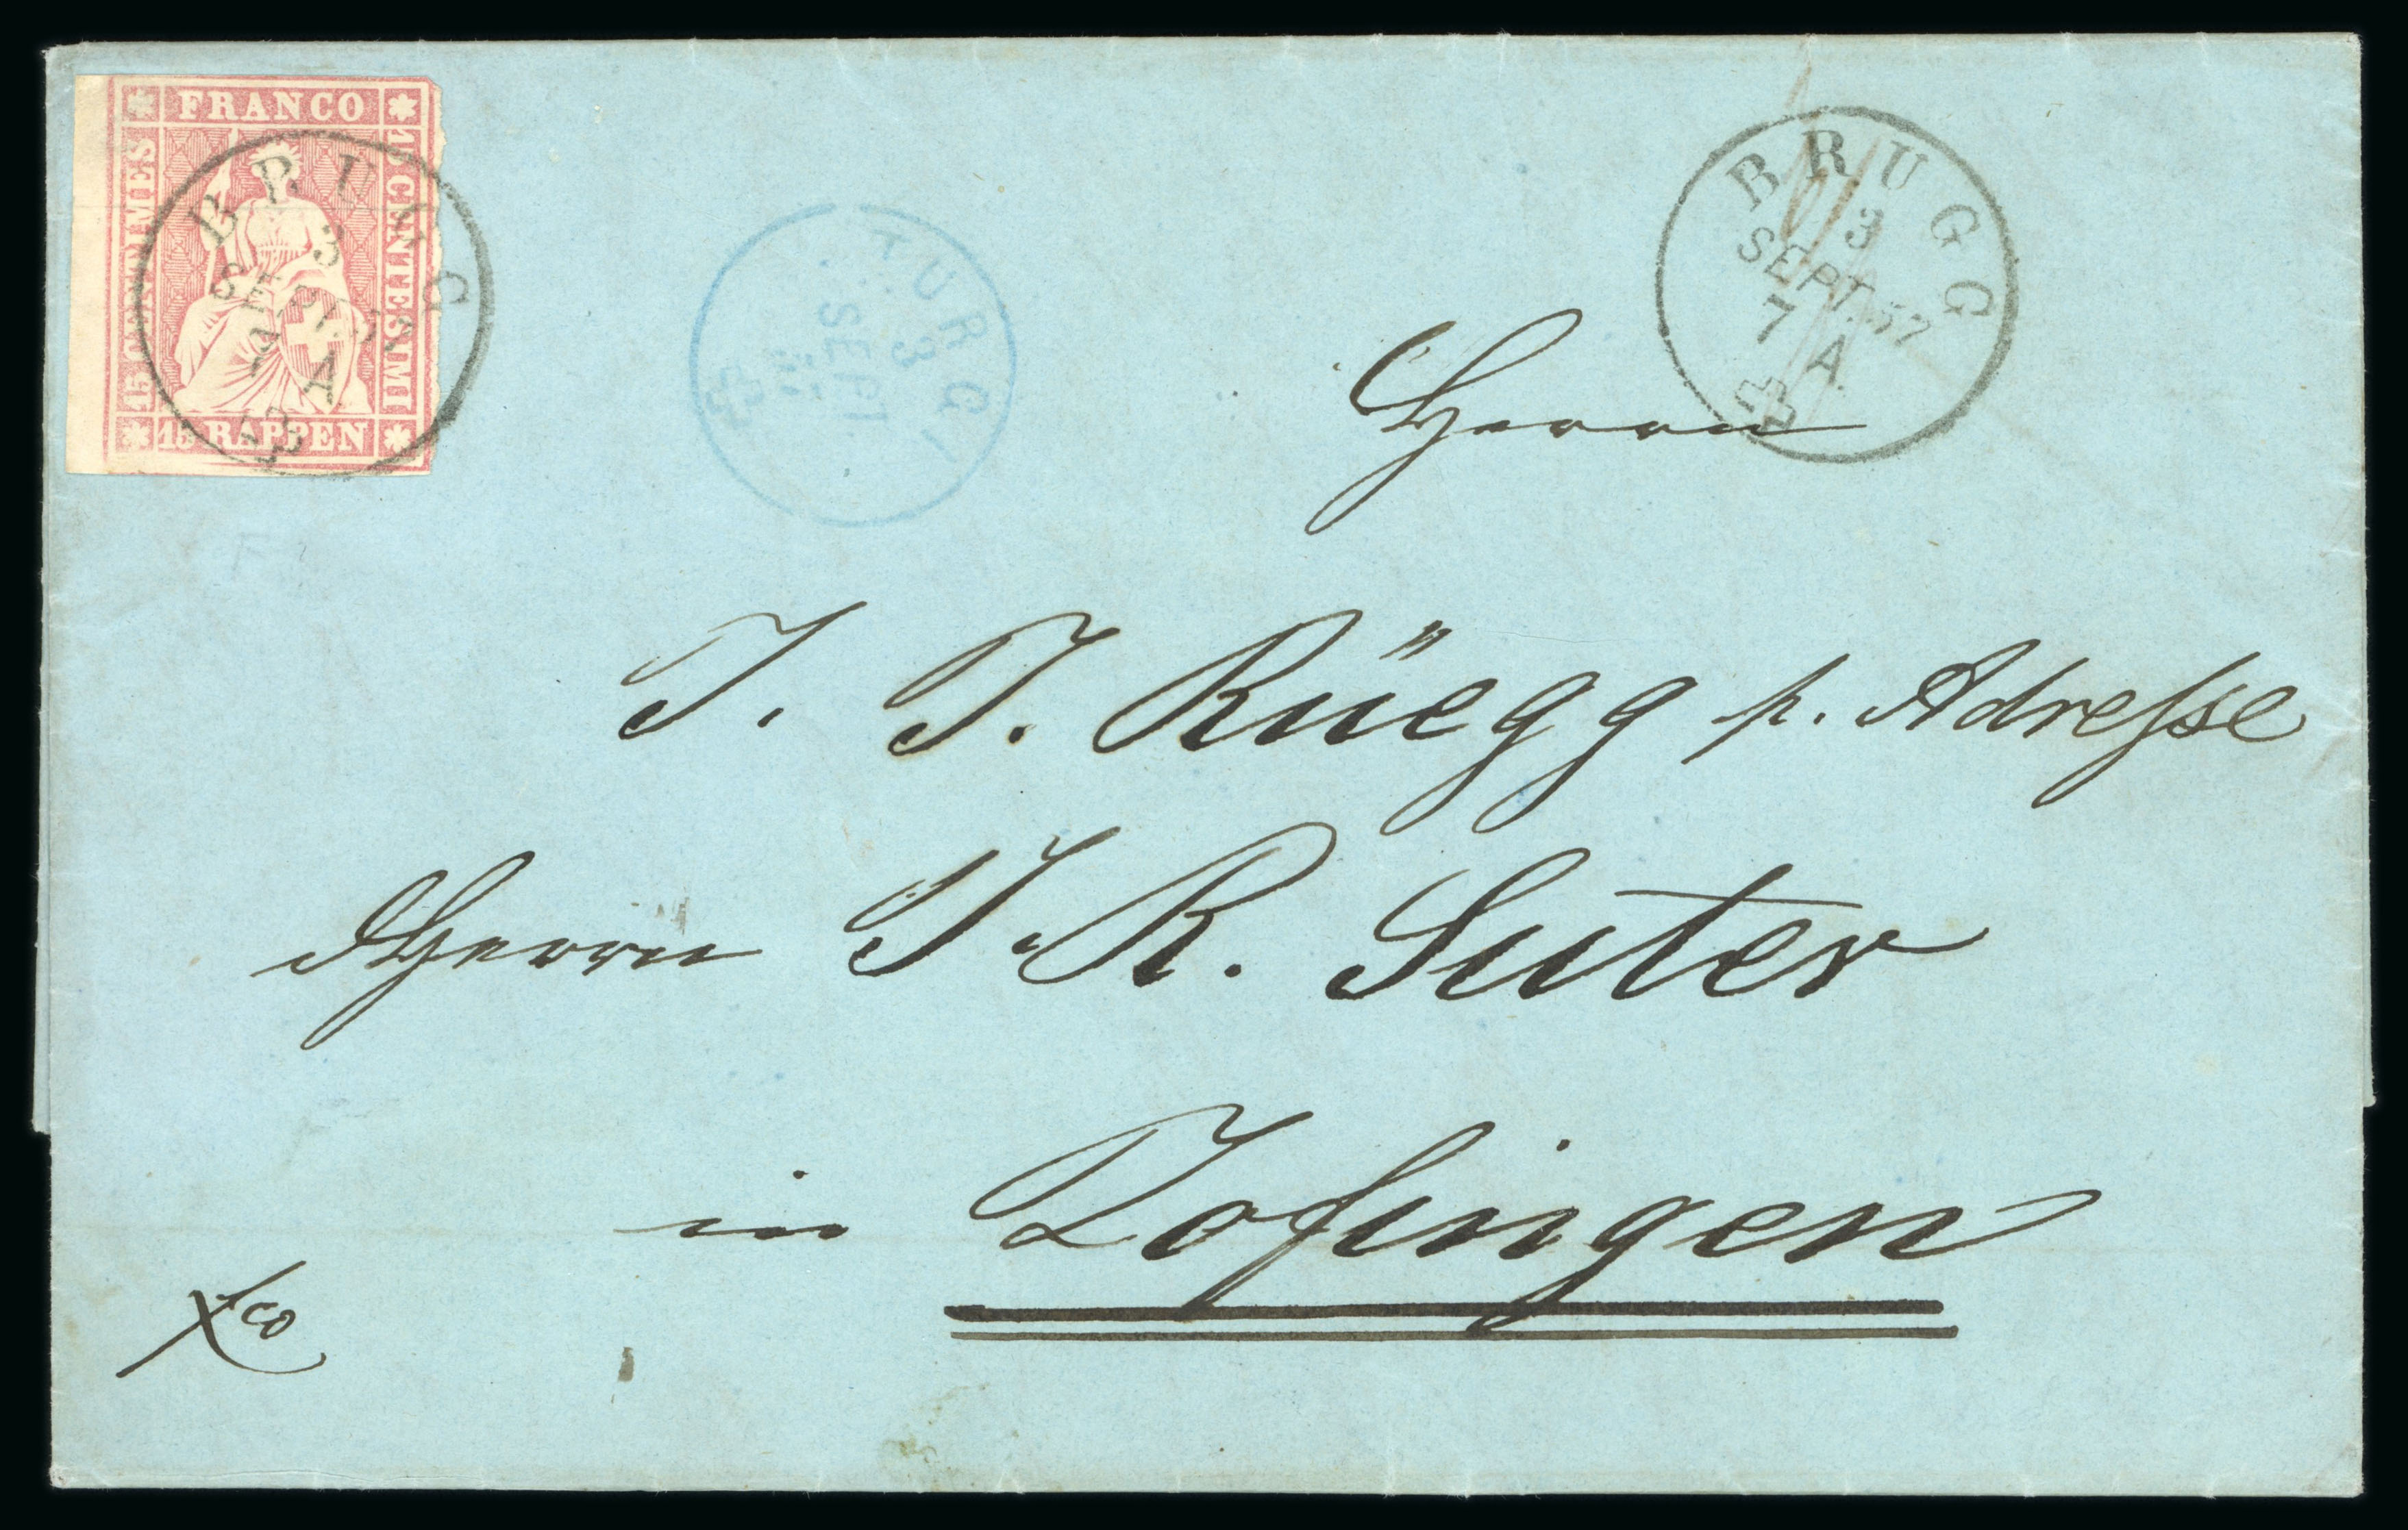 FRANCO
15 CENTIMES
15 CENTESIMI
15 RAPPEN
BRUGG
3
SEPT. 57
7 A
TURGI
3
SEPT
BRUGG
3
SEPT. 57
7 A.
Herrn
J. J. Rüegg p. Adreſse
Herrn J. R. Suter
in Zofingen
fco